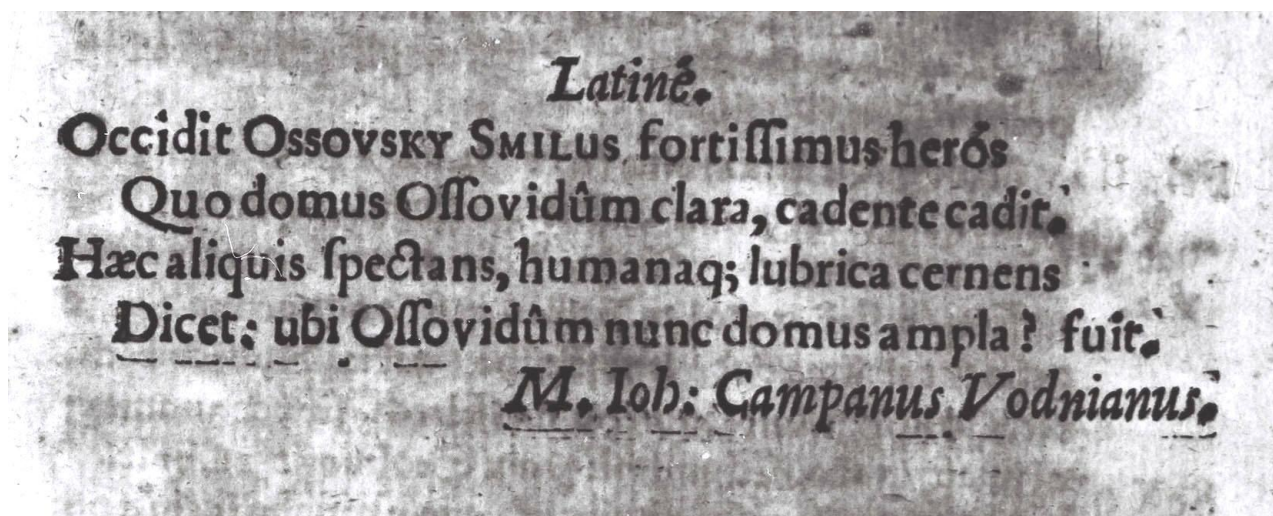 Latinè.
Occidit OSSOVSKY SMILUS fortiſſimus herós
Quo domus Oſſovidûm clara, cadente cadit.
Hæc aliquis ſpectans, humanaq; lubrica cernens
Dicet: ubi Oſſovidûm nunc domus ampla? fuit.
M. Ioh: Campanus Vodnianus.